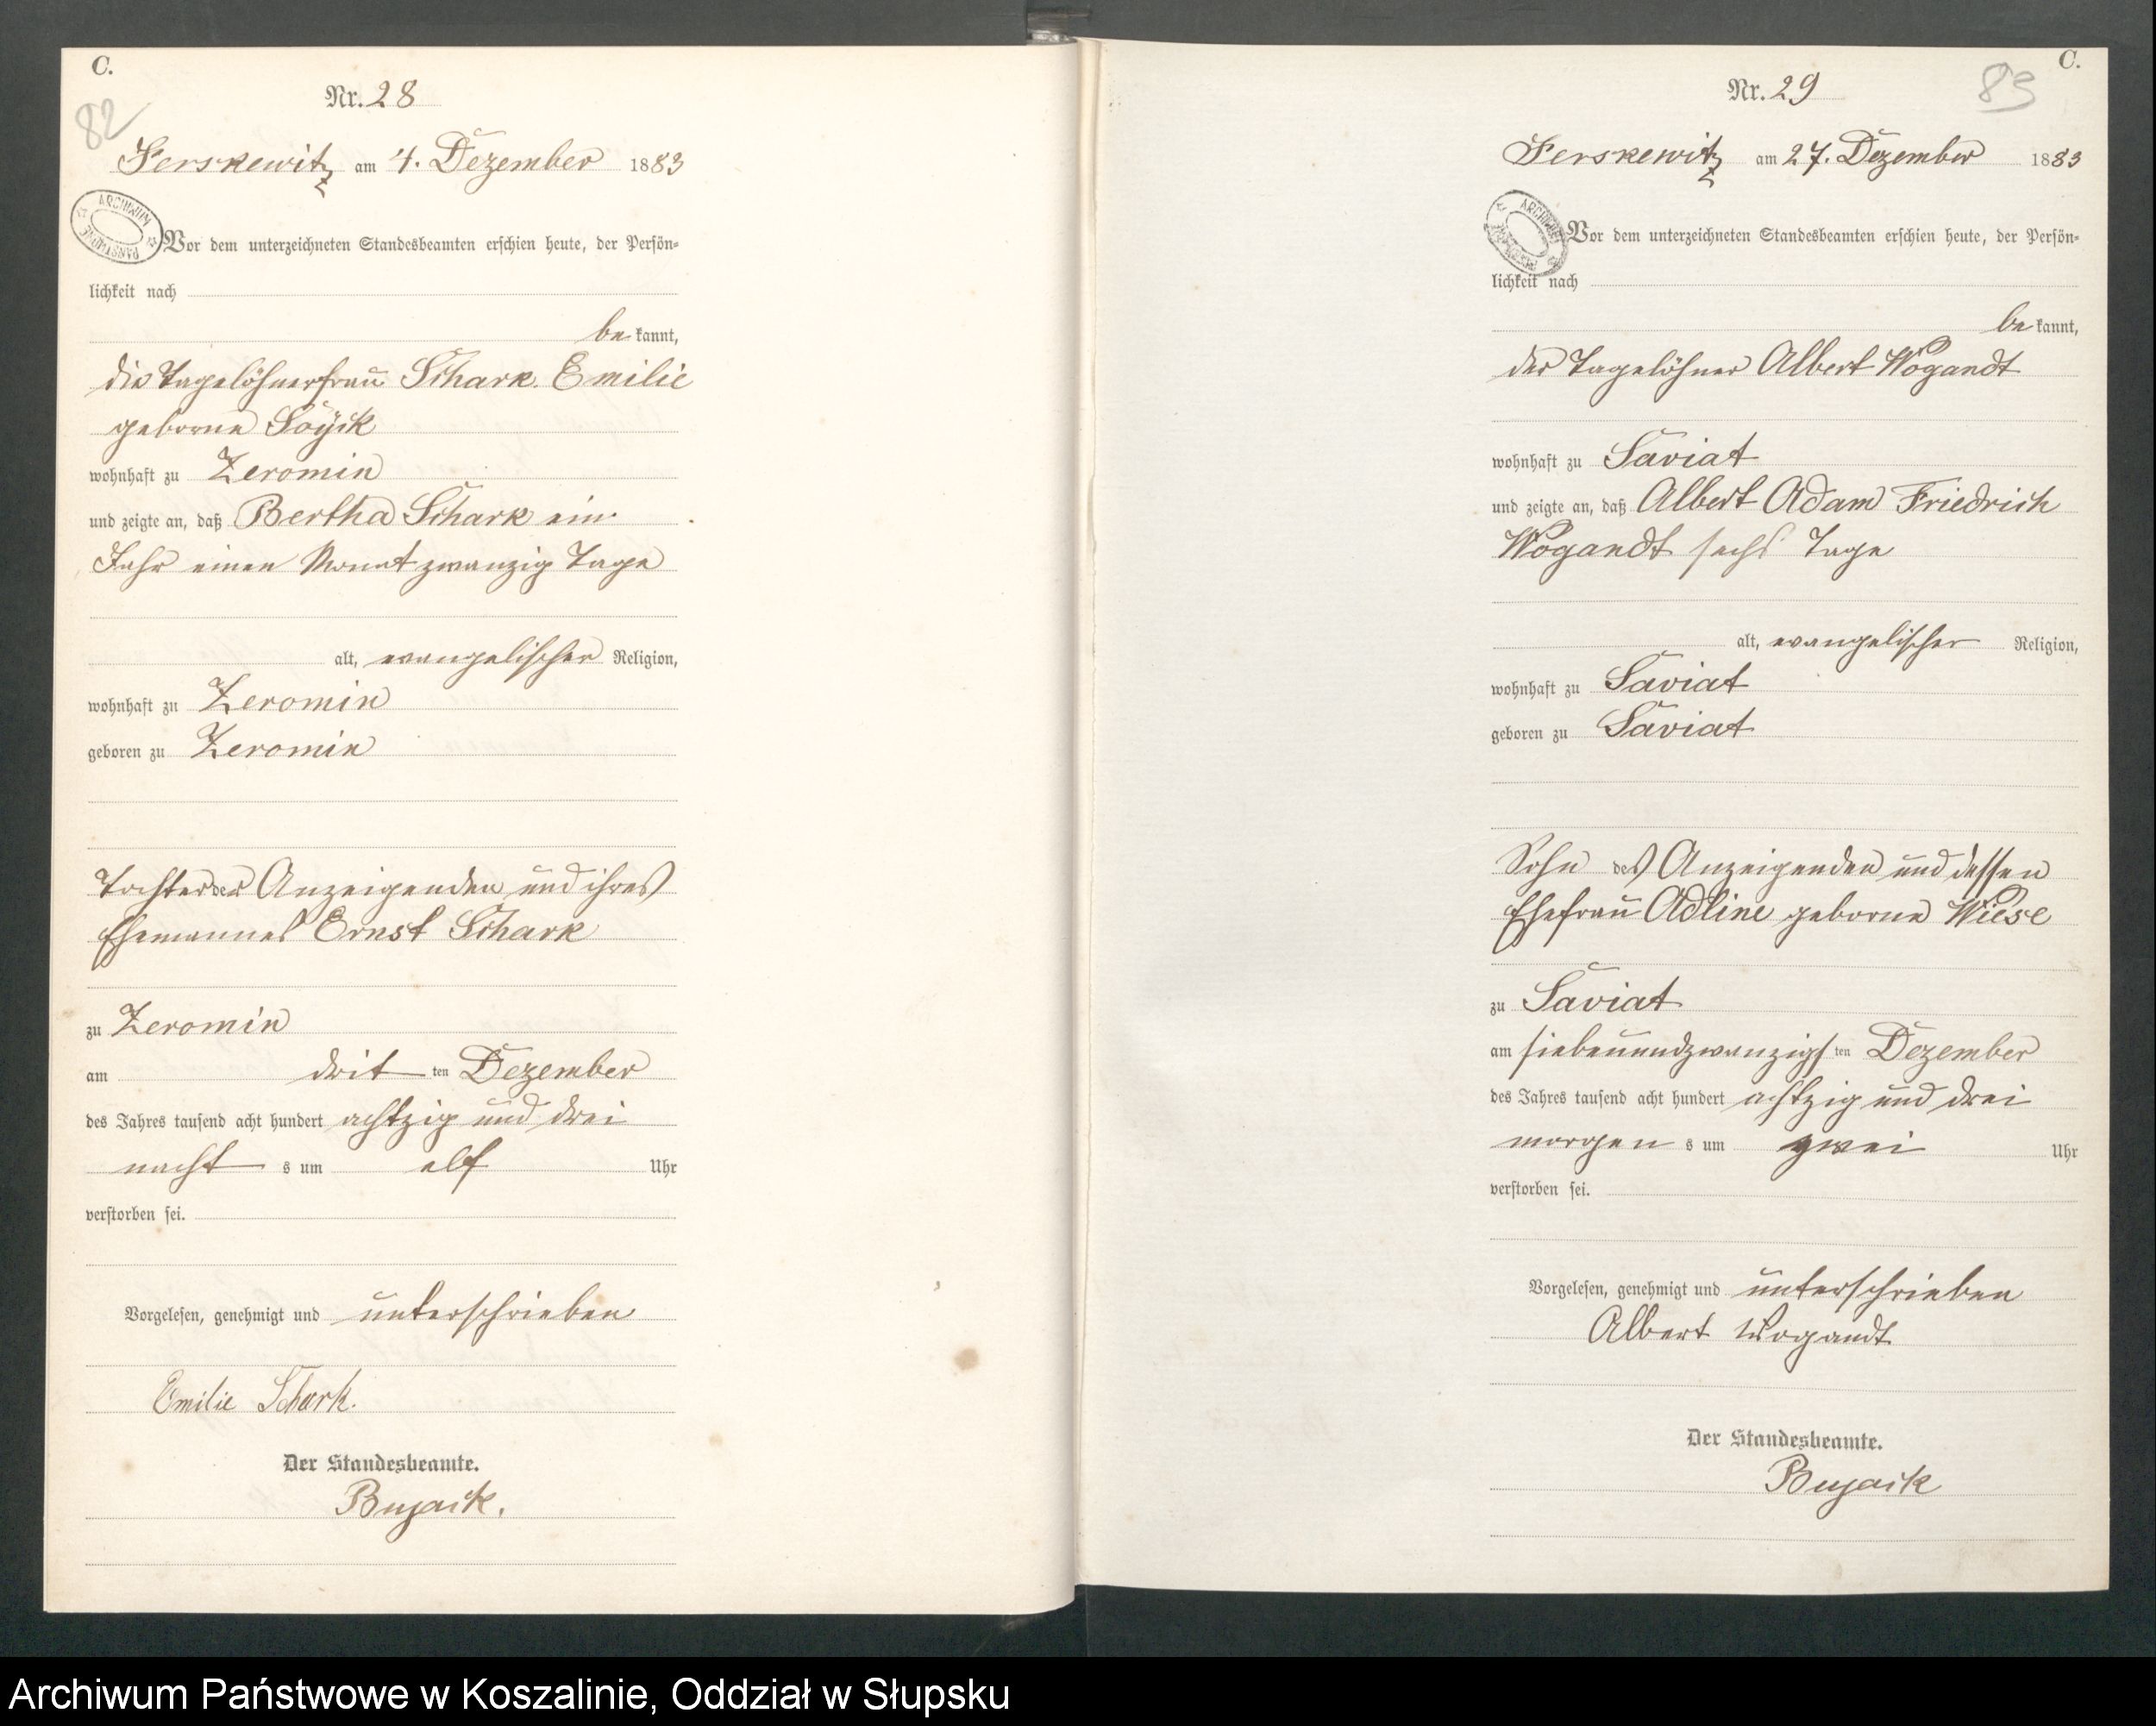 C.
82
Nr. 28
Serskewitz am 4. Dezember 1883
ARCHIWUM PAŃSTWOWE
Vor dem unterzeichneten Standesbeamten erschien heute, der Persön-
lichkeit nach
be kannt,
die Tagelöhnerfrau Schark Emilie
geborne
wohnhaft zu Zeromin
und zeigte an, daß Bertha Schark ein
Jahr einen Monat zwanzig Tage
alt, evangelischer Religion,
wohnhaft zu Zeromin
geboren zu Zeromin
Tochter der Anzeigenden und ihres
Ehemannes Ernst Schark
zu Zeromin
am drit ten Dezember
des Jahres tausend acht hundert achtzig und drei
nacht s um elf Uhr
verstorben sei.
Vorgelesen, genehmigt und unterschrieben
Emilie Schark.
Der Standesbeamte.
Bujack.
C.
83
Nr. 29
Serskewitz am 27. Dezember 1883
ARCHIWUM
Vor dem unterzeichneten Standesbeamten erschien heute, der Persön-
lichkeit nach
be kannt,
der Tagelöhner Albert Wogandt
wohnhaft zu Saviat
und zeigte an, daß Albert Adam Friedrich
Wogandt sechs Tage
alt, evangelischer Religion,
wohnhaft zu Saviat
geboren zu Saviat
Sohn des Anzeigenden und dessen
Ehefrau Adline geborne Wiese
zu Saviat
am siebenundzwanzigs ten Dezember
des Jahres tausend acht hundert achtzig und drei
morgen s um zwei Uhr
verstorben sei.
Vorgelesen, genehmigt und unterschrieben
Albert Wogandt
Der Standesbeamte.
Bujack
Archiwum Państwowe w Koszalinie, Oddział w Słupsku